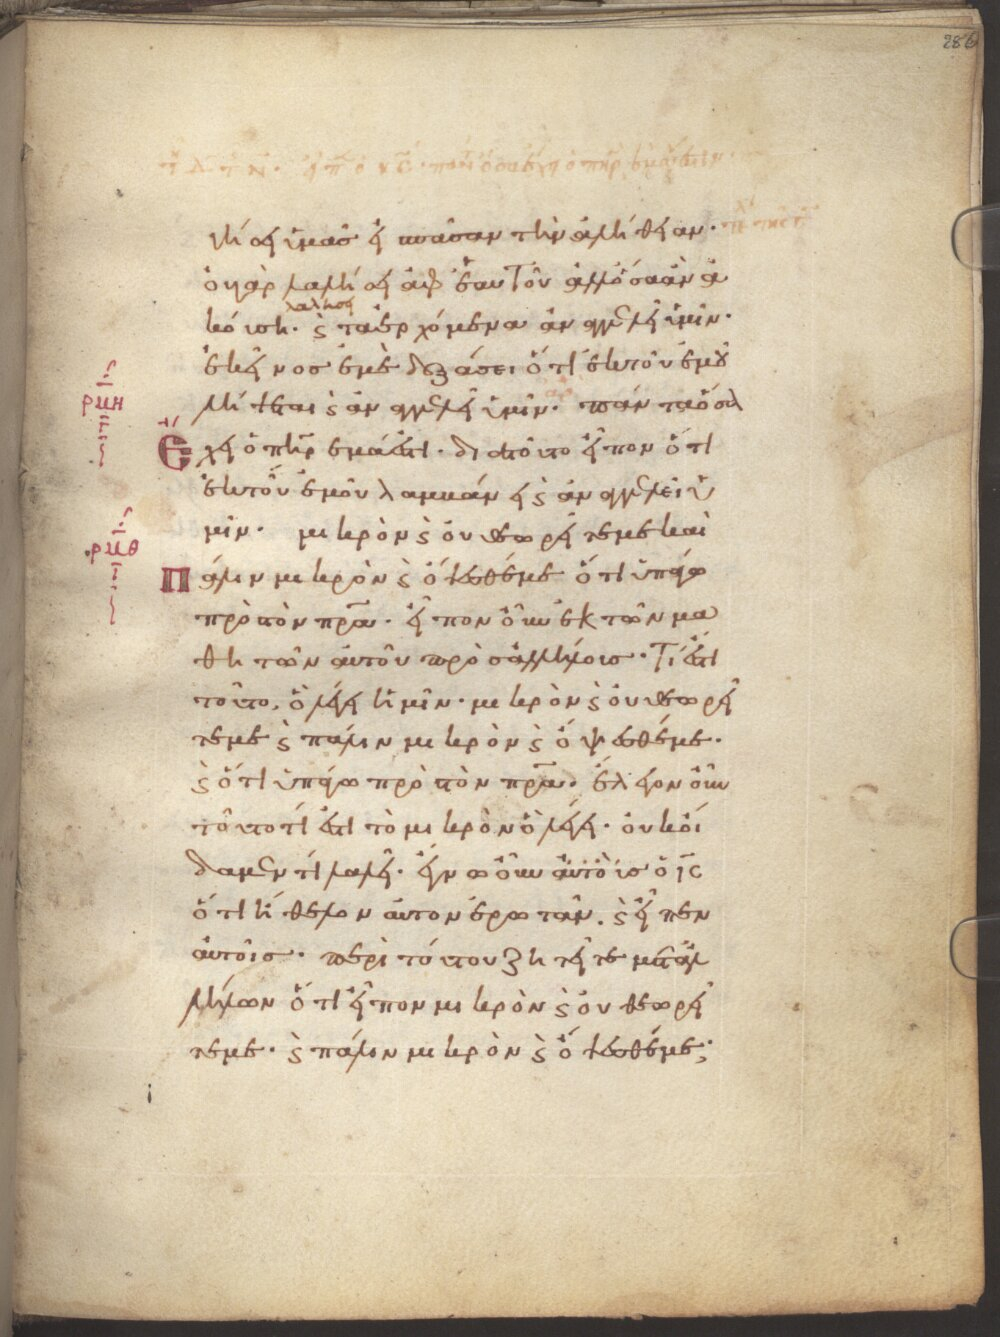 286
τῇ Δ τ Ν · εἶπ ὁ κς · πάντα ὅσα ἔχει ὁ πηρ ἐμά ἐστιν ·
γήσει ὑμᾶσ εἰ πᾶσαν τὴν ἀλήθειαν ·
οὐ γὰρ λαλήσει ἀφ ἑαυτοῦ ἀλλ' ὅσα ἂν ἀ
λαλήσει
κούση · ϛ τὰ ἐρχόμενα ἀναγγελεῖ ὑμῖν ·
ἐκεῖνοσ ἐμὲ δοξάσει ὅτι ἐκ τοῦ ἐμοῦ
ρμη
λήψεται ϛ ἀναγγελεῖ ὑμῖν · πάντα ὅσα
ἀρ
Ἔχει ὁ πηρ ἐμά ἐστι · διατοῦτο εἶπον ὅτι
ἐκ τοῦ ἐμοῦ λαμβάνει ϛ ἀναγγελεῖ ὑ
μῖν · μικρὸν ϛ οὐ θεωρεῖτέ με καὶ
ρμθ
Πάλιν μικρὸν ϛ ὄψεσθέ με ὅτι ὑπάγω
πρὸ τὸν πρα · εἶπον οὖν ἐκ τῶν μα
θητῶν αὐτοῦ πρὸσ ἀλλήλουσ · Τί ἐστι
τοῦτο, ὃ λέγει ἡμῖν · μικρὸν ϛ οὐ θεωρεῖ
τέ με ϛ πάλιν μικρὸν ϛ ὄψεσθέ με ·
ϛ ὅτι ὑπάγω πρὸ τὸν πρα · ἔλεγον οὖν
τοῦτο τί ἐστι τὸ μικρὸν ὃ λέγει · οὐκ οἴ
δαμεν τί λαλεῖ · ἔγνω οὖν αὐτοῖσ ὁ ις
ὅτι ἤθελον αὐτὸν ἐρωτᾶν · ϛ εἶπεν
αὐτοῖσ · περὶ τούτου ζητεῖτε μετ' ἀλ
λήλων ὅτι εἶπον μικρὸν ϛ οὐ θεωρεῖ
τέ με · ϛ πάλιν μικρὸν ϛ ὄψεσθέ με ;